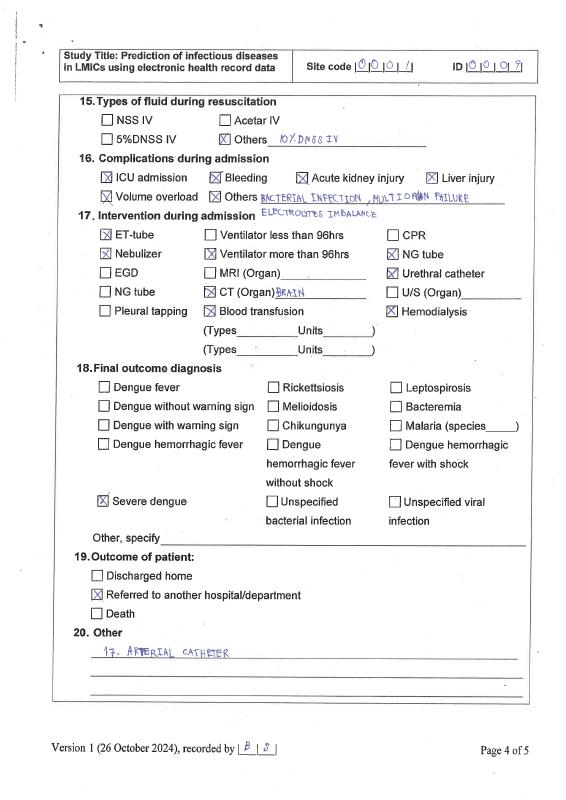 Study Title: Prediction of infectious diseases
in LMICs using electronic health record data
Site code |0|0|0|1| ID |0|0|0|9|
15. Types of fluid during resuscitation
☐ NSS IV ☐ Acetar IV
☐ 5%DNSS IV ☒ Others 10% DNSS IV
16. Complications during admission
☒ ICU admission ☒ Bleeding ☒ Acute kidney injury ☒ Liver injury
☒ Volume overload ☒ Others BACTERIAL INFECTION, MULTIORGAN FAILURE
17. Intervention during admission ELECTROLITES IMBALANCE
☒ ET-tube ☐ Ventilator less than 96hrs ☐ CPR
☒ Nebulizer ☒ Ventilator more than 96hrs ☒ NG tube
☐ EGD ☐ MRI (Organ)__________ ☒ Urethral catheter
☐ NG tube ☒ CT (Organ) BRAIN ☐ U/S (Organ)__________
☐ Pleural tapping ☒ Blood transfusion ☒ Hemodialysis
(Types__________Units________)
(Types__________Units________)
18. Final outcome diagnosis
☐ Dengue fever ☐ Rickettsiosis ☐ Leptospirosis
☐ Dengue without warning sign ☐ Melioidosis ☐ Bacteremia
☐ Dengue with warning sign ☐ Chikungunya ☐ Malaria (species_____)
☐ Dengue hemorrhagic fever ☐ Dengue ☐ Dengue hemorrhagic
hemorrhagic fever fever with shock
without shock
☒ Severe dengue ☐ Unspecified ☐ Unspecified viral
bacterial infection infection
Other, specify__________
19. Outcome of patient:
☐ Discharged home
☒ Referred to another hospital/department
☐ Death
20. Other
17. ARTERIAL CATHETER
Version 1 (26 October 2024), recorded by |B|S| Page 4 of 5